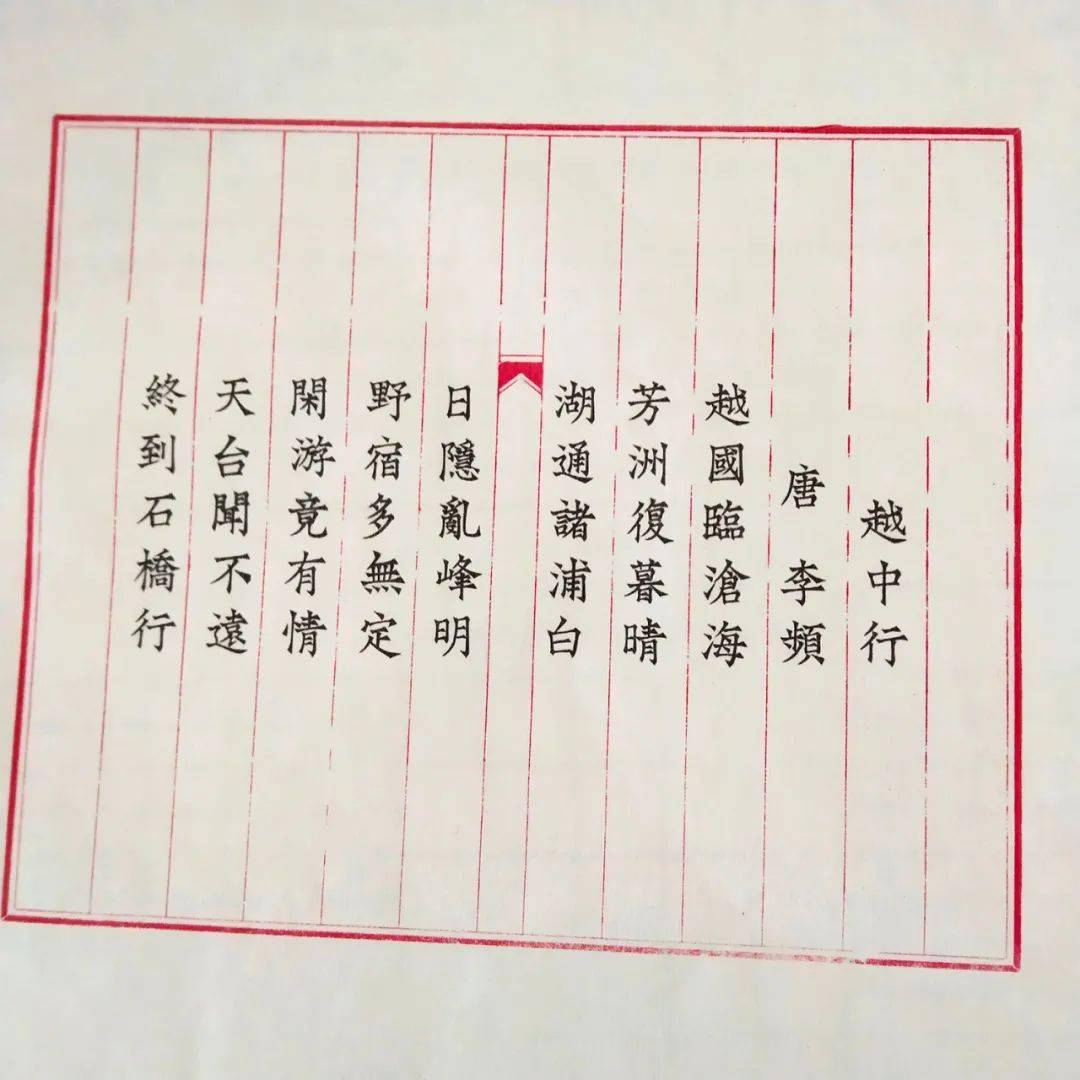 越中行
唐 李頻
越國臨滄海
芳洲復暮晴
湖通諸浦白
日隱亂峰明
野宿多無定
閑游竟有情
天台聞不遠
終到石橋行